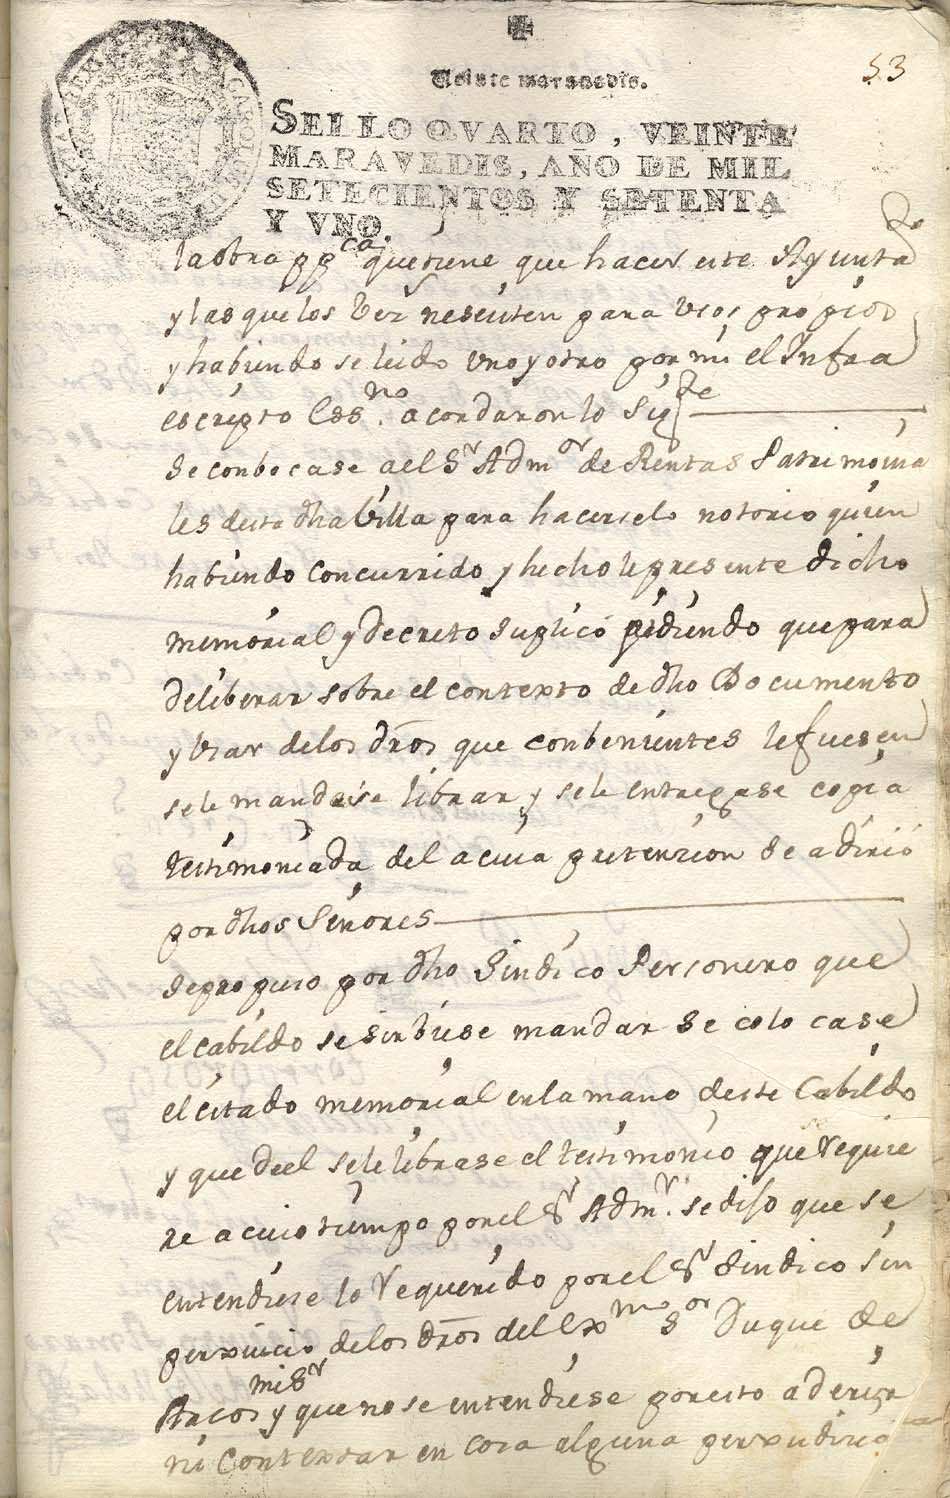 53
Veinte maravedis.
SELLO QVARTO, VEINTE
MARAVEDIS, AÑO DE MIL
SETECIENTOS Y SETENTA
Y VNO.
CAROLUS
la obra ppca. que tiene que hacer este Ayuntto
y las que los Vez nesesiten para vsos propios
y habiendo se leido vno y otro por mi el Infra
escripto Essno. acordaron lo Sigte
Se conbocase a el Sr Admor de Rentas Patrimonia
les desta dha Villa para hacerselo notorio quien
habiendo concurrido y hecho le presente dicho
memorial y decreto suplicó pidiendo que para
deliberar sobre el contexto de dho Documento
y vsar de los dros que conbenientes le fuesen
se le mandase librar y se le entregase copia
testimoniada del a cuia pretenzion se adirió
por dhos Señores
Se propuso por dho Sindico Personero que
el cabildo se sirbiese mandar se colocase
el citado memorial en la mano deste Cabildo
y que deel se le librase el testimonio que requie
re a cuio tiempo por el Sr Admr. se diso que se
entendiese lo requerido por el Sr Sindico sin
perxuicio de los dros del Exmo Sor Duque de
Arcos mi Sr y que no se entendiese por esto aderir
ni contextar en cosa alguna perxudicia